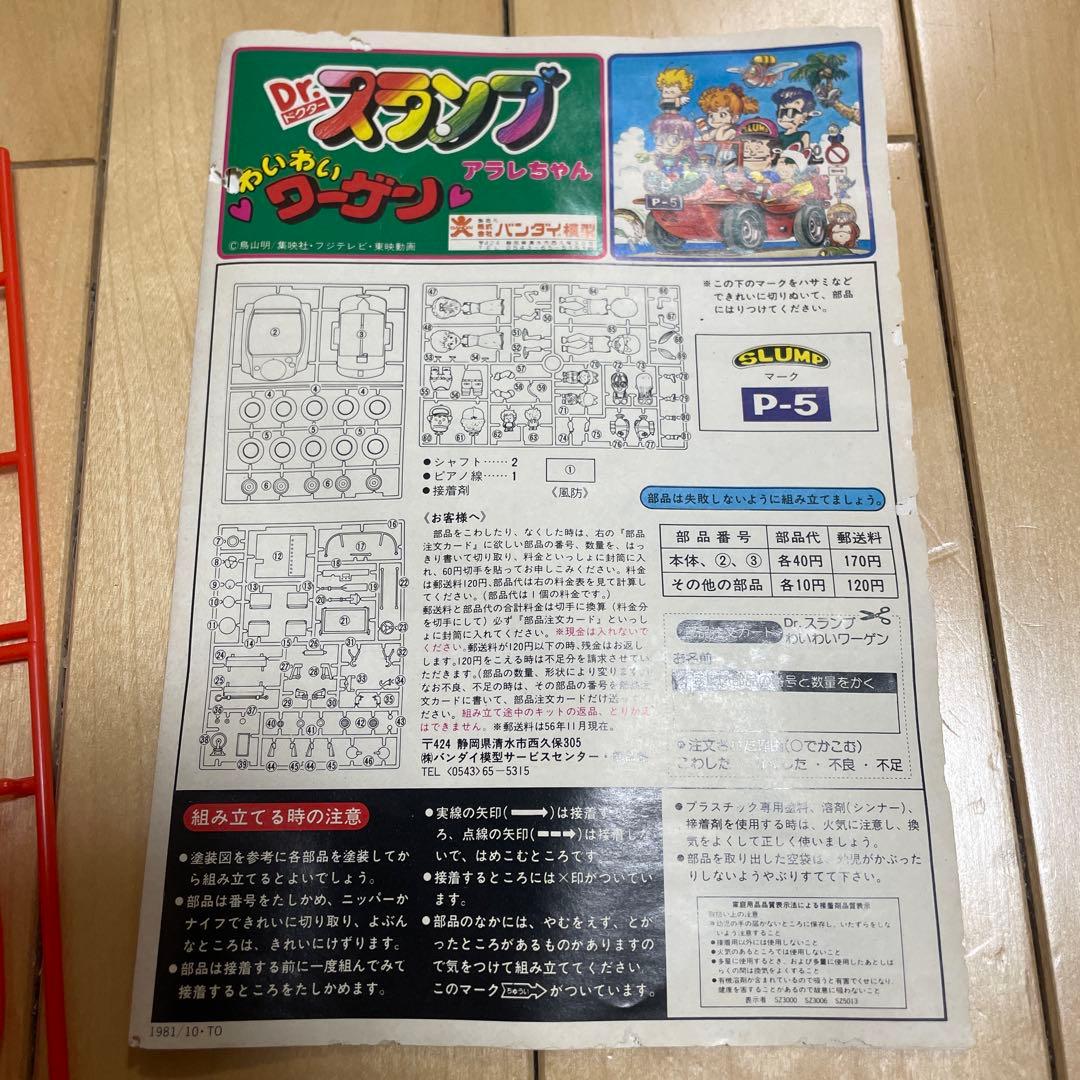 Dr.スランプ
ドクター
アラレちゃん
わいわい
ワーゲン
©鳥山明/集英社・フジテレビ・東映動画
株式会社 バンダイ模型
SLUMP
P-5
※この下のマークをハサミなど
できれいに切りぬいて、部品
にはりつけてください。
SLUMP
マーク
P-5
●シャフト……2
●ピアノ線……1
●接着剤
①
《風防》
部品は失敗しないように組み立てましょう。
《お客様へ》
部品をこわしたり、なくした時は、右の『部品
注文カード』に欲しい部品の番号、数量を、はっ
きり書いて切り取り、料金といっしょに封筒に入
れ、60円切手を貼ってお申しこみください。料金
は郵送料120円、部品代は右の料金表を見て計算し
てください。(部品代は1個の料金です。)
郵送料と部品代の合計料金は切手に換算(料金分
を切手にして)必ず『部品注文カード』といっし
ょに封筒に入れてください。※現金は入れないで
ください。郵送料が120円以下の時、残金はお返し
します。120円をこえる時は不足分を請求させてい
ただきます。(部品の数量、形状により変ります。)
なお不良、不足の時は、その部品の番号を
文カードに書いて、部品注文カードだけ送っ
ださい。組み立て途中のキットの返品、とりかえ
はできません。※郵送料は56年11月現在。
〒424 静岡県清水市西久保305
㈱バンダイ模型サービスセンター・
TEL <0543>65-5315
部品番号 部品代 郵送料
本体、②、③ 各40円 170円
その他の部品 各10円 120円
注文カード
Dr.スランプ
わいわいワーゲン
お名前
号と数量をかく
(○でかこむ)
こわした・ した・不良・不足
組み立てる時の注意
●塗装図を参考に各部品を塗装してか
ら組み立てるとよいでしょう。
●部品は番号をたしかめ、ニッパーか
ナイフできれいに切り取り、よぶん
なところは、きれいにけずります。
●部品は接着する前に一度組んでみて
接着するところをたしかめます。
●実線の矢印(→)は接着す
ろ、点線の矢印(⇢)は接着しな
いで、はめこむところです
●接着するところには×印がついてい
ます。
●部品のなかには、やむをえず、とが
ったところがあるものかありますの
で気をつけて組み立ててください。
このマーク ちゅうい がついています。
●プラスチック専用塗料、溶剤(シンナー)、
接着剤を使用する時は、火気に注意し、換
気をよくして正しく使いましょう。
●部品を取り出した空袋は、幼児がかぶった
りしないようやぶりすてて下さい。
家庭用品品質表示法による接着剤品質表示
取扱い上の注意
●幼児の手の届かないところに保存し、いたずらをしな
いよう注意すること
●接着用以外には使用しないこと
●火気のあるところでは使用しないこと
●多量に使用するとき、および多量に使用したあとしば
らくの間は換気をよくすること
●有機溶剤が含まれているので吸うと有害でくせになり、
健康を害することがあるので故意に吸わないこと
表示者 SZ3000 SZ3006 SZ5013
1981/10・TO